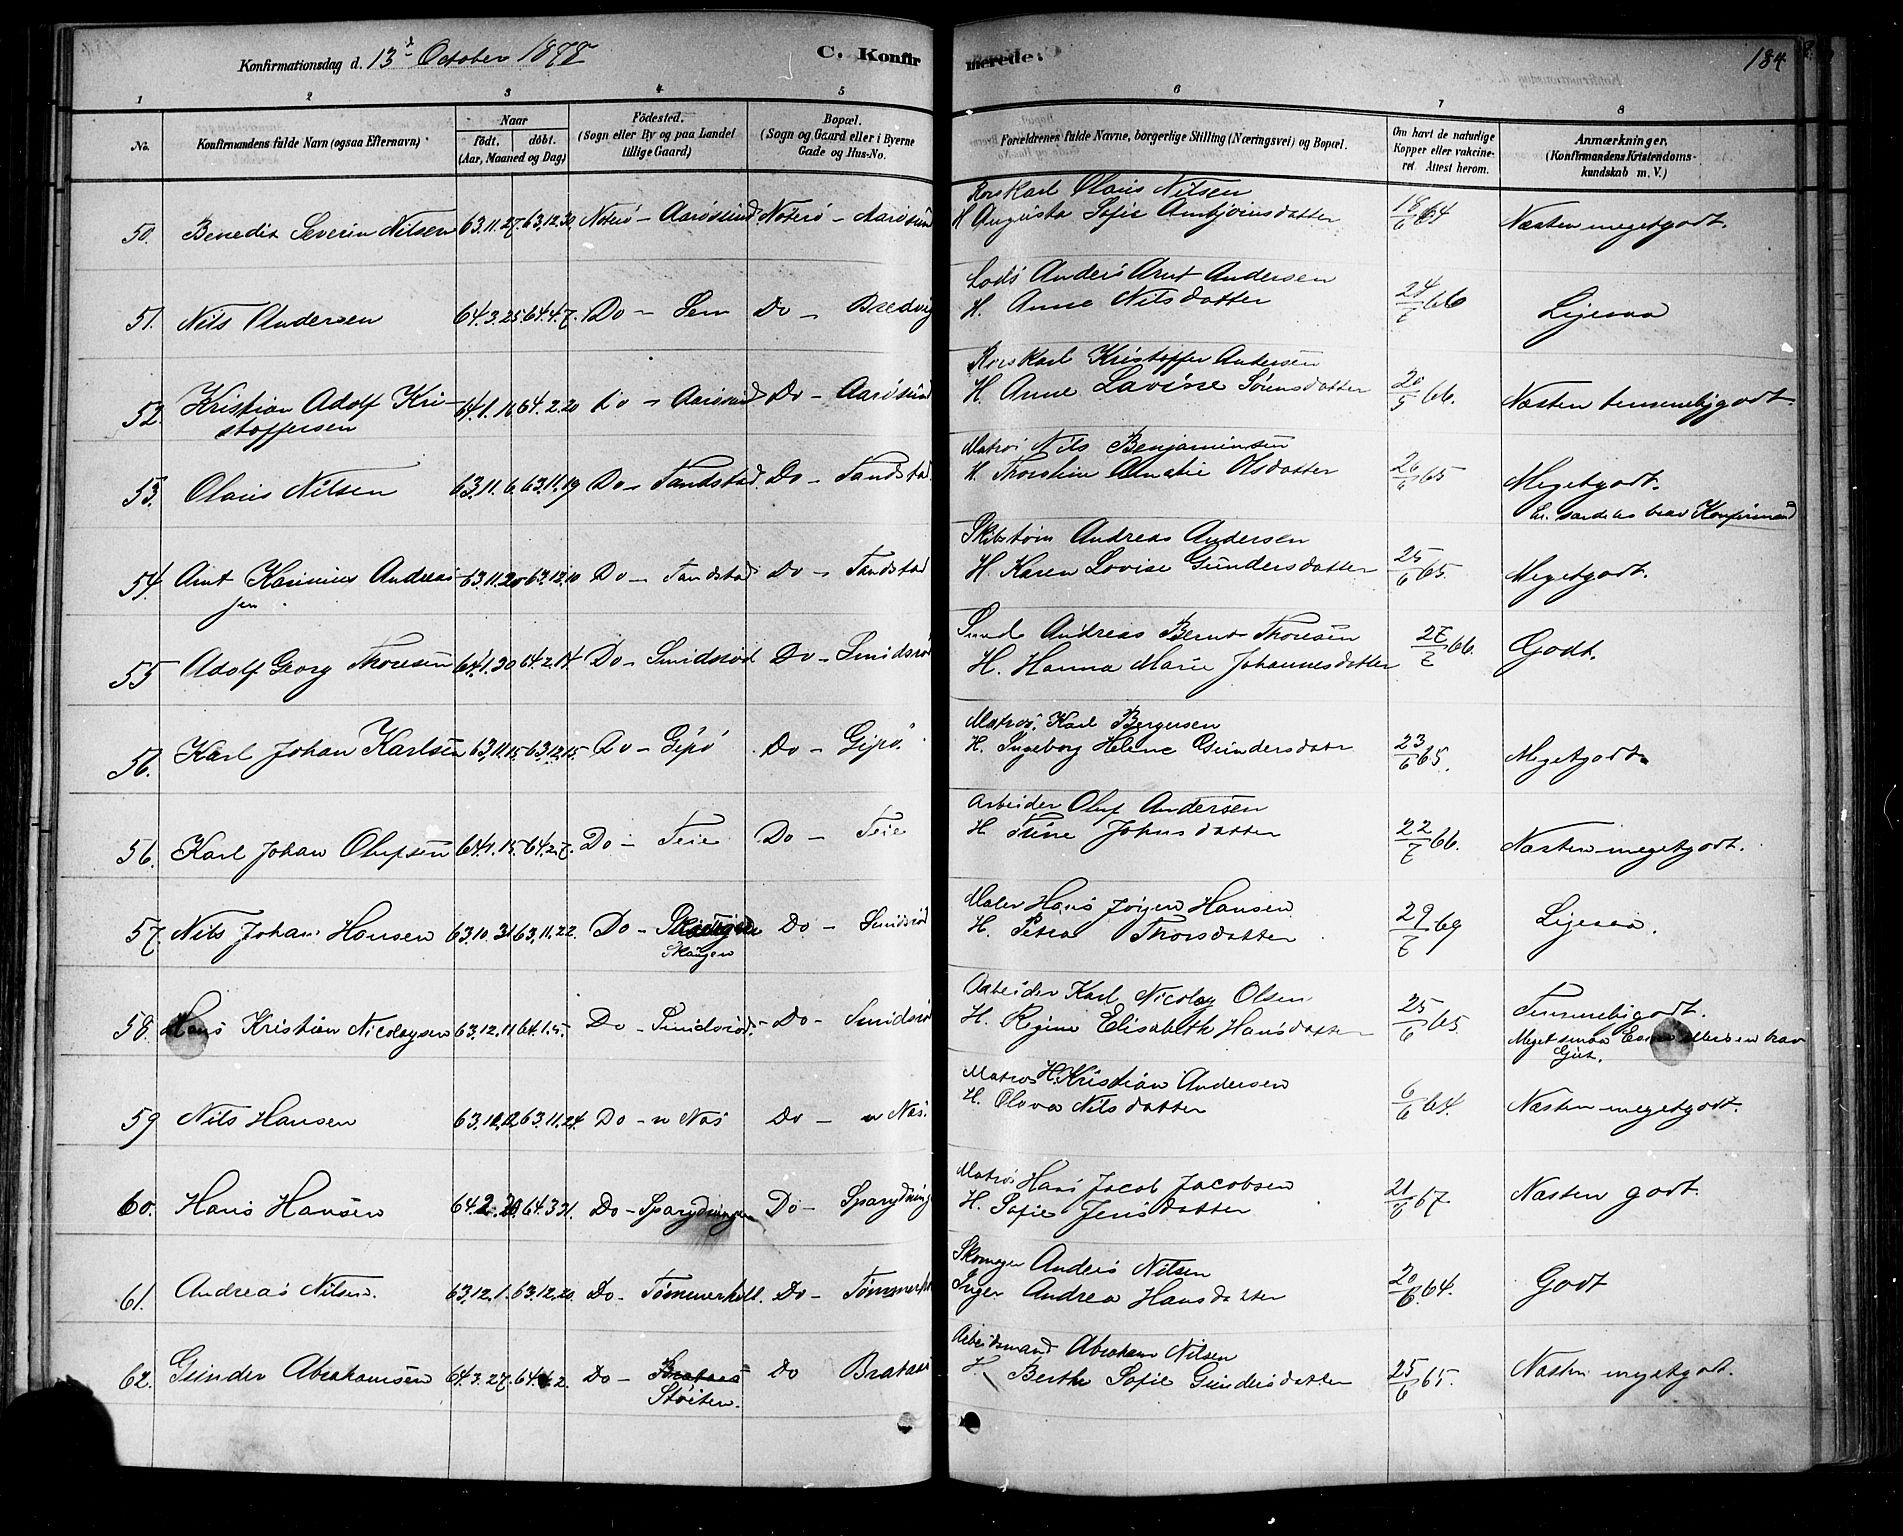 Konfirmationsdag d. 13d October 1878
C. Konfirmerede.
184
1 2 3 4 5 6 7 8
No. Konfirmandens fulde Navn (ogsaa Efternavn) Naar født. døbt. (Aar, Maaned og Dag) Fødested. (Sogn eller By og paa Landet tillige Gaard) Bopæl. (Sogn og Gaard eller i Byerne Gade og Hus-No. Forældrenes fulde Navne, borgerlige Stilling (Næringsvei) og Bopæl. Om havt de naturlige Kopper eller vakcineret. Attest herom. Anmærkninger. (Konfirmandens Kristendomskundskab m. V.)
50. Benedit Severin Nilsen 63.11.27. 63.12.30 Noterø - Aarøsund. Noterø - Aarøsund Rorskarl Olaus Nilsen
H Augusta Sofie Arnbjørnsdatter 18/6 64 Næsten megetgodt.
51. Nils Andersen 64.3.25 64.4.7. Do - Sem Do - Bredvig Lods Anders Arnt Andersen
H. Anne Nilsdatter 24/7 66 Ligesaa
52. Kristian Adolf Kri- 64.1.16 64.2.20 Do - Aarøsund Do - Aarøsund Rorskarl Kristoffer Andersen
stoffersen H. Anne Lavine Sørensdatter 20/5 66. Næsten temmeligodt.
53. Olaus Nilsen 63.11.6. 63.11.19 Do - Tandstad. Do - Tandstad. Matros Nils Benjaminsen
H. Thorstine Amalie Olsdatter 26/6 65 Megetgodt.
brav Konfirmand
54. Arnt Kasinius Andreas- 63.11.20 63.12.10 Do - Tandstad Do - Tandstad Skibstøm Andreas Andersen
sen. H. Karen Lovise Gundersdatter 25/6 65. Megetgodt.
55 Adolf Georg Thoresen 64.1.20 64.2.14. Do - Smidsrød Do - Smidsrød Andreas Bernt Thoresen
H. Hanna Marie Johannesdatter 27/7 66. Godt.
56. Karl Johan Karlsen 63.11.15. 63.12.15. Do - Gipø. Do - Gipø. Matros. Karl Bergersen
H. Ingeborg Helene Gundersdatr 23/6 65. Megetgodt.
56. Karl Johan Olufsen 64.1.15. 64.2.7. Do - Teie Do - Teie Arbeider Oluf Andersen
H. Trine Johnsdatter 22/7 66. Næsten megetgodt.
57. Nils Johan Hansen 63.10.31 63.11.22. Do - Skaugen Do - Smidsrød Maler Hans Jørgen Hansen
H. Petra Thorsdatter 29/7 69 Ligesaa.
58. Hans Kristian Nicolaysen 63.12.11 64.1.5. Do - Smidsrød. - Do - Smidsrø Arbeider Karl Nicolay Olsen
H. Regine Elisabeth Hansdatter 25/6 65. Temmeligodt.
Meget smaa Evner ellers en brav
Gut.
59 Nils Hansen 63.10.12. 63.11.24. Do - n Nøs Do - n Nøs. Matros H. Kristian Andersen
H. Olava Nilsdatter 6/6 64. Næsten megetgodt.
60. Hans Hansen 64.2.20. 64.3.31. Do - Sparydningen Do - Sparydning Matros Hans Jacob Jacobsen
H. Sofie Jensdatter 21/6 67. Næsten godt.
61. Andreas Nilsen. 63.12.1. 63.12.20. Do - Tømmerholt. Do - Tømmerh Skomager Anders Nilsen
Inger Andrea Hansdatter 20/6 64. Godt
62. Gunder Abrahamsen 64.3.27. 64.4.2. Do - Brataas Do Bratas Arbeidsmand Abraham Nilsen
Støiten. H. Berthe Sofie Gundersdatter 25/6 65. Næsten megetgodt.